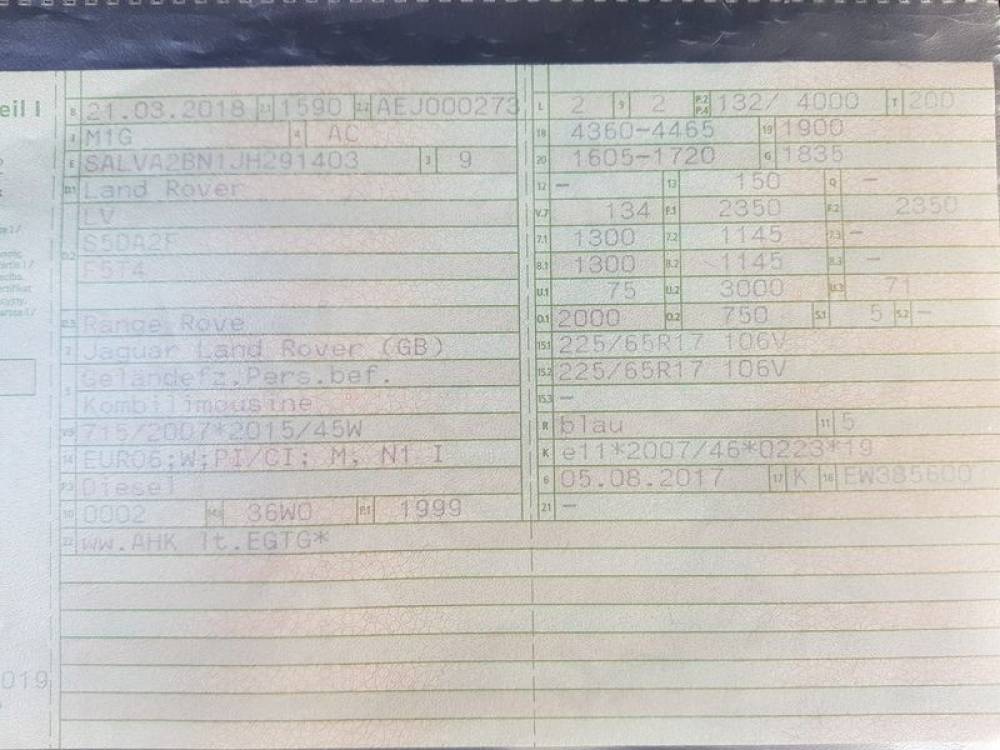 eil I
B 21.03.2018 2.1 1590 2.2 AEJ000273
J M1G 4 AC
E SALVA2BN1JH291403 3 9
D.1 Land Rover
LV
D.2 S5DA2F
F5T4
D.3 Range Rove
2 Jaguar Land Rover (GB)
5 Geländefz.Pers.bef.
Kombilimousine
V.9 715/2007*2015/45W
14 EURO6;W;PI/CI; M, N1 I
P.3 Diesel
10 0002 14.1 36W0 P.1 1999
22 ww.AHK lt.EGTG*
L 2 9 2 P.2 P.4 132/ 4000 T 200
18 4360-4465 19 1900
20 1605-1720 G 1835
12 - 13 150 Q -
V.7 134 F.1 2350 F.2 2350
7.1 1300 7.2 1145 7.3 -
8.1 1300 8.2 1145 8.3 -
U.1 75 U.2 3000 U.3 71
O.1 2000 O.2 750 S.1 5 S.2 -
15.1 225/65R17 106V
15.2 225/65R17 106V
15.3 -
R blau 11 5
K e11*2007/46*0223*19
6 05.08.2017 17 K 16 EW385600
21 -
019